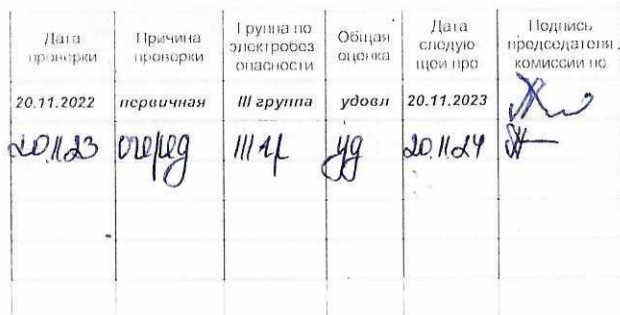 Дата проверки
Причина проверки
Группа по электробез опасности
Общая оценка
Дата следую щей про
Подпись председателя комиссии по
20.11.2022 первичная III группа удовл 20.11.2023
20.11.23 очеред III гр уд 20.11.24